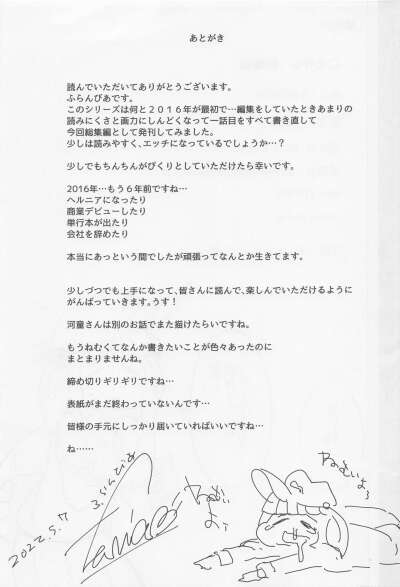 あとがき
読んでいただいてありがとうございます。
ふらんぴあです。
このシリーズは何と2016年が最初で…編集をしていたときあまりの
読みにくさと画力にしんどくなって一話目をすべて書き直して
今回総集編として発刊してみました。
少しは読みやすく、エッチになっているでしょうか…？
少しでもちんちんがぴくりとしていただけたら幸いです。
2016年…もう６年前ですね…
ヘルニアになったり
商業デビューしたり
単行本が出たり
会社を辞めたり
本当にあっという間でしたが頑張ってなんとか生きてます。
少しづつでも上手になって、皆さんに読んで、楽しんでいただけるように
がんばっていきます。うす！
河童さんは別のお話でまた描けたらいいですね。
もうねむくてなんか書きたいことが色々あったのに
まとまりませんね。
締め切りギリギリですね…
表紙がまだ終わっていないんです…
皆様の手元にしっかり届いていればいいですね…
ね……
ふらんぴあ
ねむいよぅ
ねむいよぅ
2022.5.17